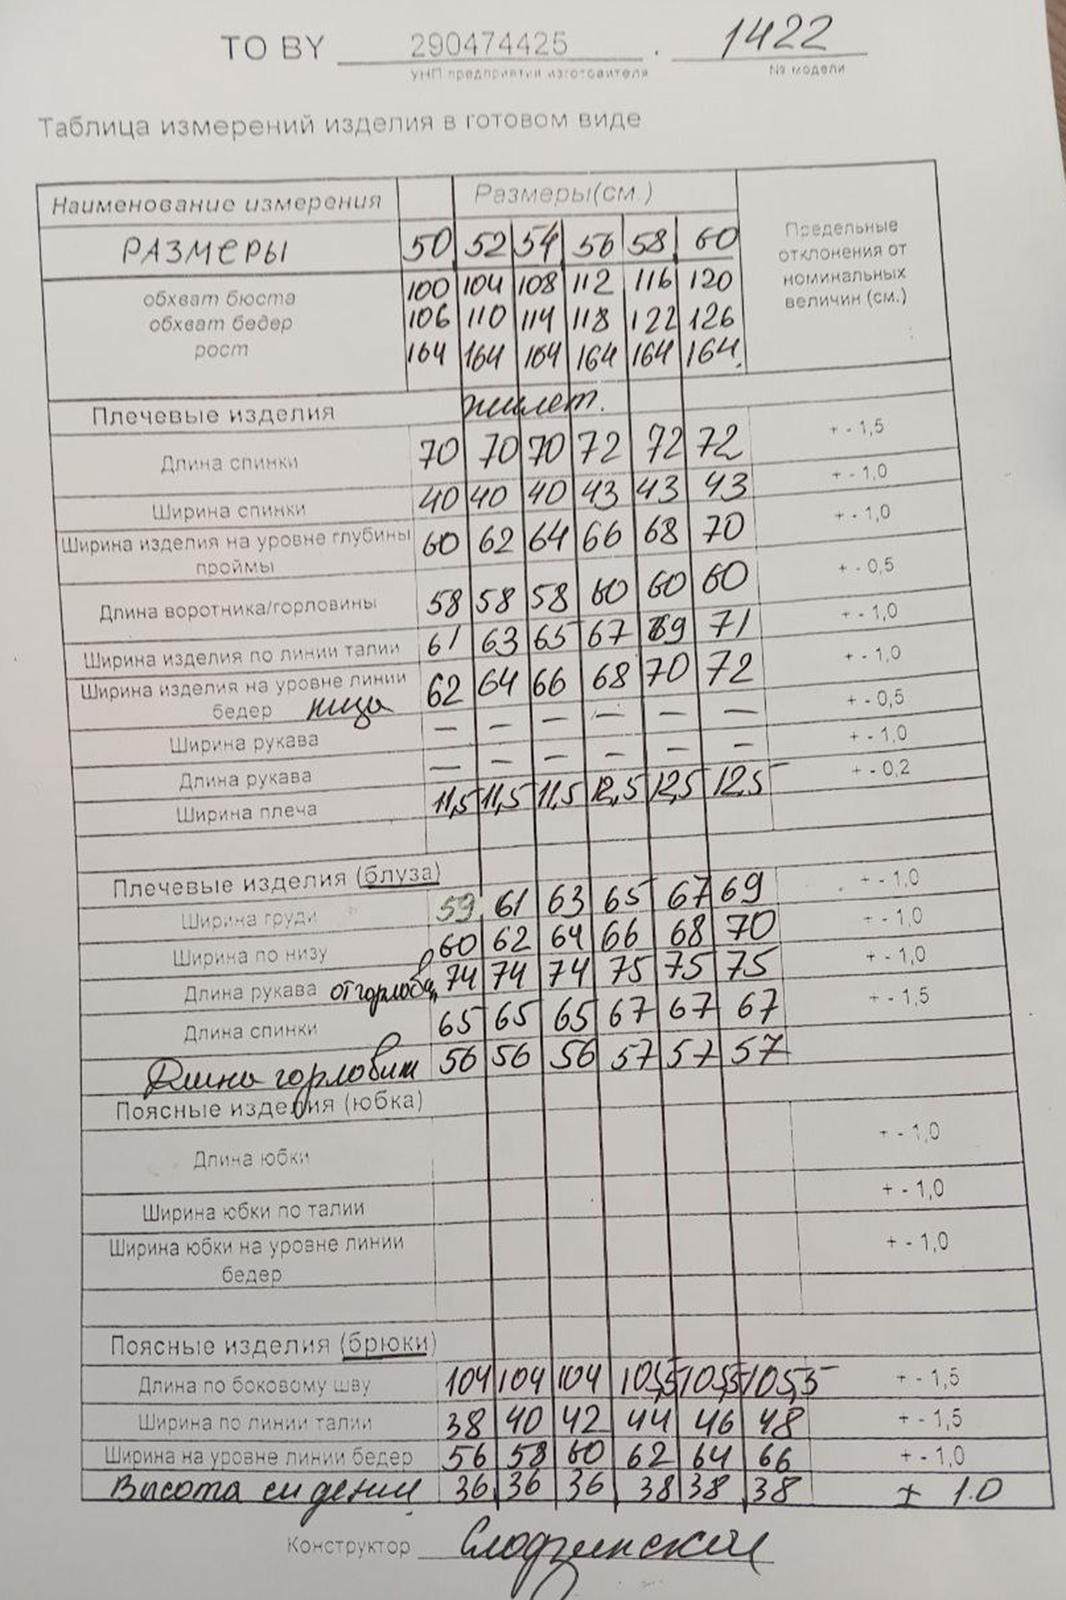 ТО BY 290474425 . 1422
УНП предприятия изготовителя № модели
Таблица измерений изделия в готовом виде
Наименование измерения Размеры(см.) Предельные отклонения от номинальных величин (см.)
РАЗМЕРЫ 50 52 54 56 58 60
обхват бюста 100 104 108 112 116 120
обхват бедер 106 110 114 118 122 126
рост 164 164 164 164 164 164
Плечевые изделия жилет.
Длина спинки 70 70 70 72 72 72 + - 1,5
Ширина спинки 40 40 40 43 43 43 + - 1,0
Ширина изделия на уровне глубины проймы 60 62 64 66 68 70 + - 1,0
Длина воротника/горловины 58 58 58 60 60 60 + - 0,5
Ширина изделия по линии талии 61 63 65 67 69 71 + - 1,0
Ширина изделия на уровне линии бедер низа 62 64 66 68 70 72 + - 1,0
Ширина рукава — — — — — — + - 0,5
Длина рукава — — — — — — + - 1,0
Ширина плеча 11,5 11,5 11,5 12,5 12,5 12,5 + - 0,2
Плечевые изделия (блуза)
Ширина груди 59 61 63 65 67 69 + - 1,0
Ширина по низу 60 62 64 66 68 70 + - 1,0
Длина рукава от горлов 74 74 74 75 75 75 + - 1,0
Длина спинки 65 65 65 67 67 67 + - 1,5
Длина горловин 56 56 56 57 57 57
Поясные изделия (юбка)
Длина юбки + - 1,0
Ширина юбки по талии + - 1,0
Ширина юбки на уровне линии бедер + - 1,0
Поясные изделия (брюки)
Длина по боковому шву 104 104 104 105,5 105,5 105,5 + - 1,5
Ширина по линии талии 38 40 42 44 46 48 + - 1,5
Ширина на уровне линии бедер 56 58 60 62 64 66 + - 1,0
Высота сидения 36 36 36 38 38 38 ± 1.0
Конструктор